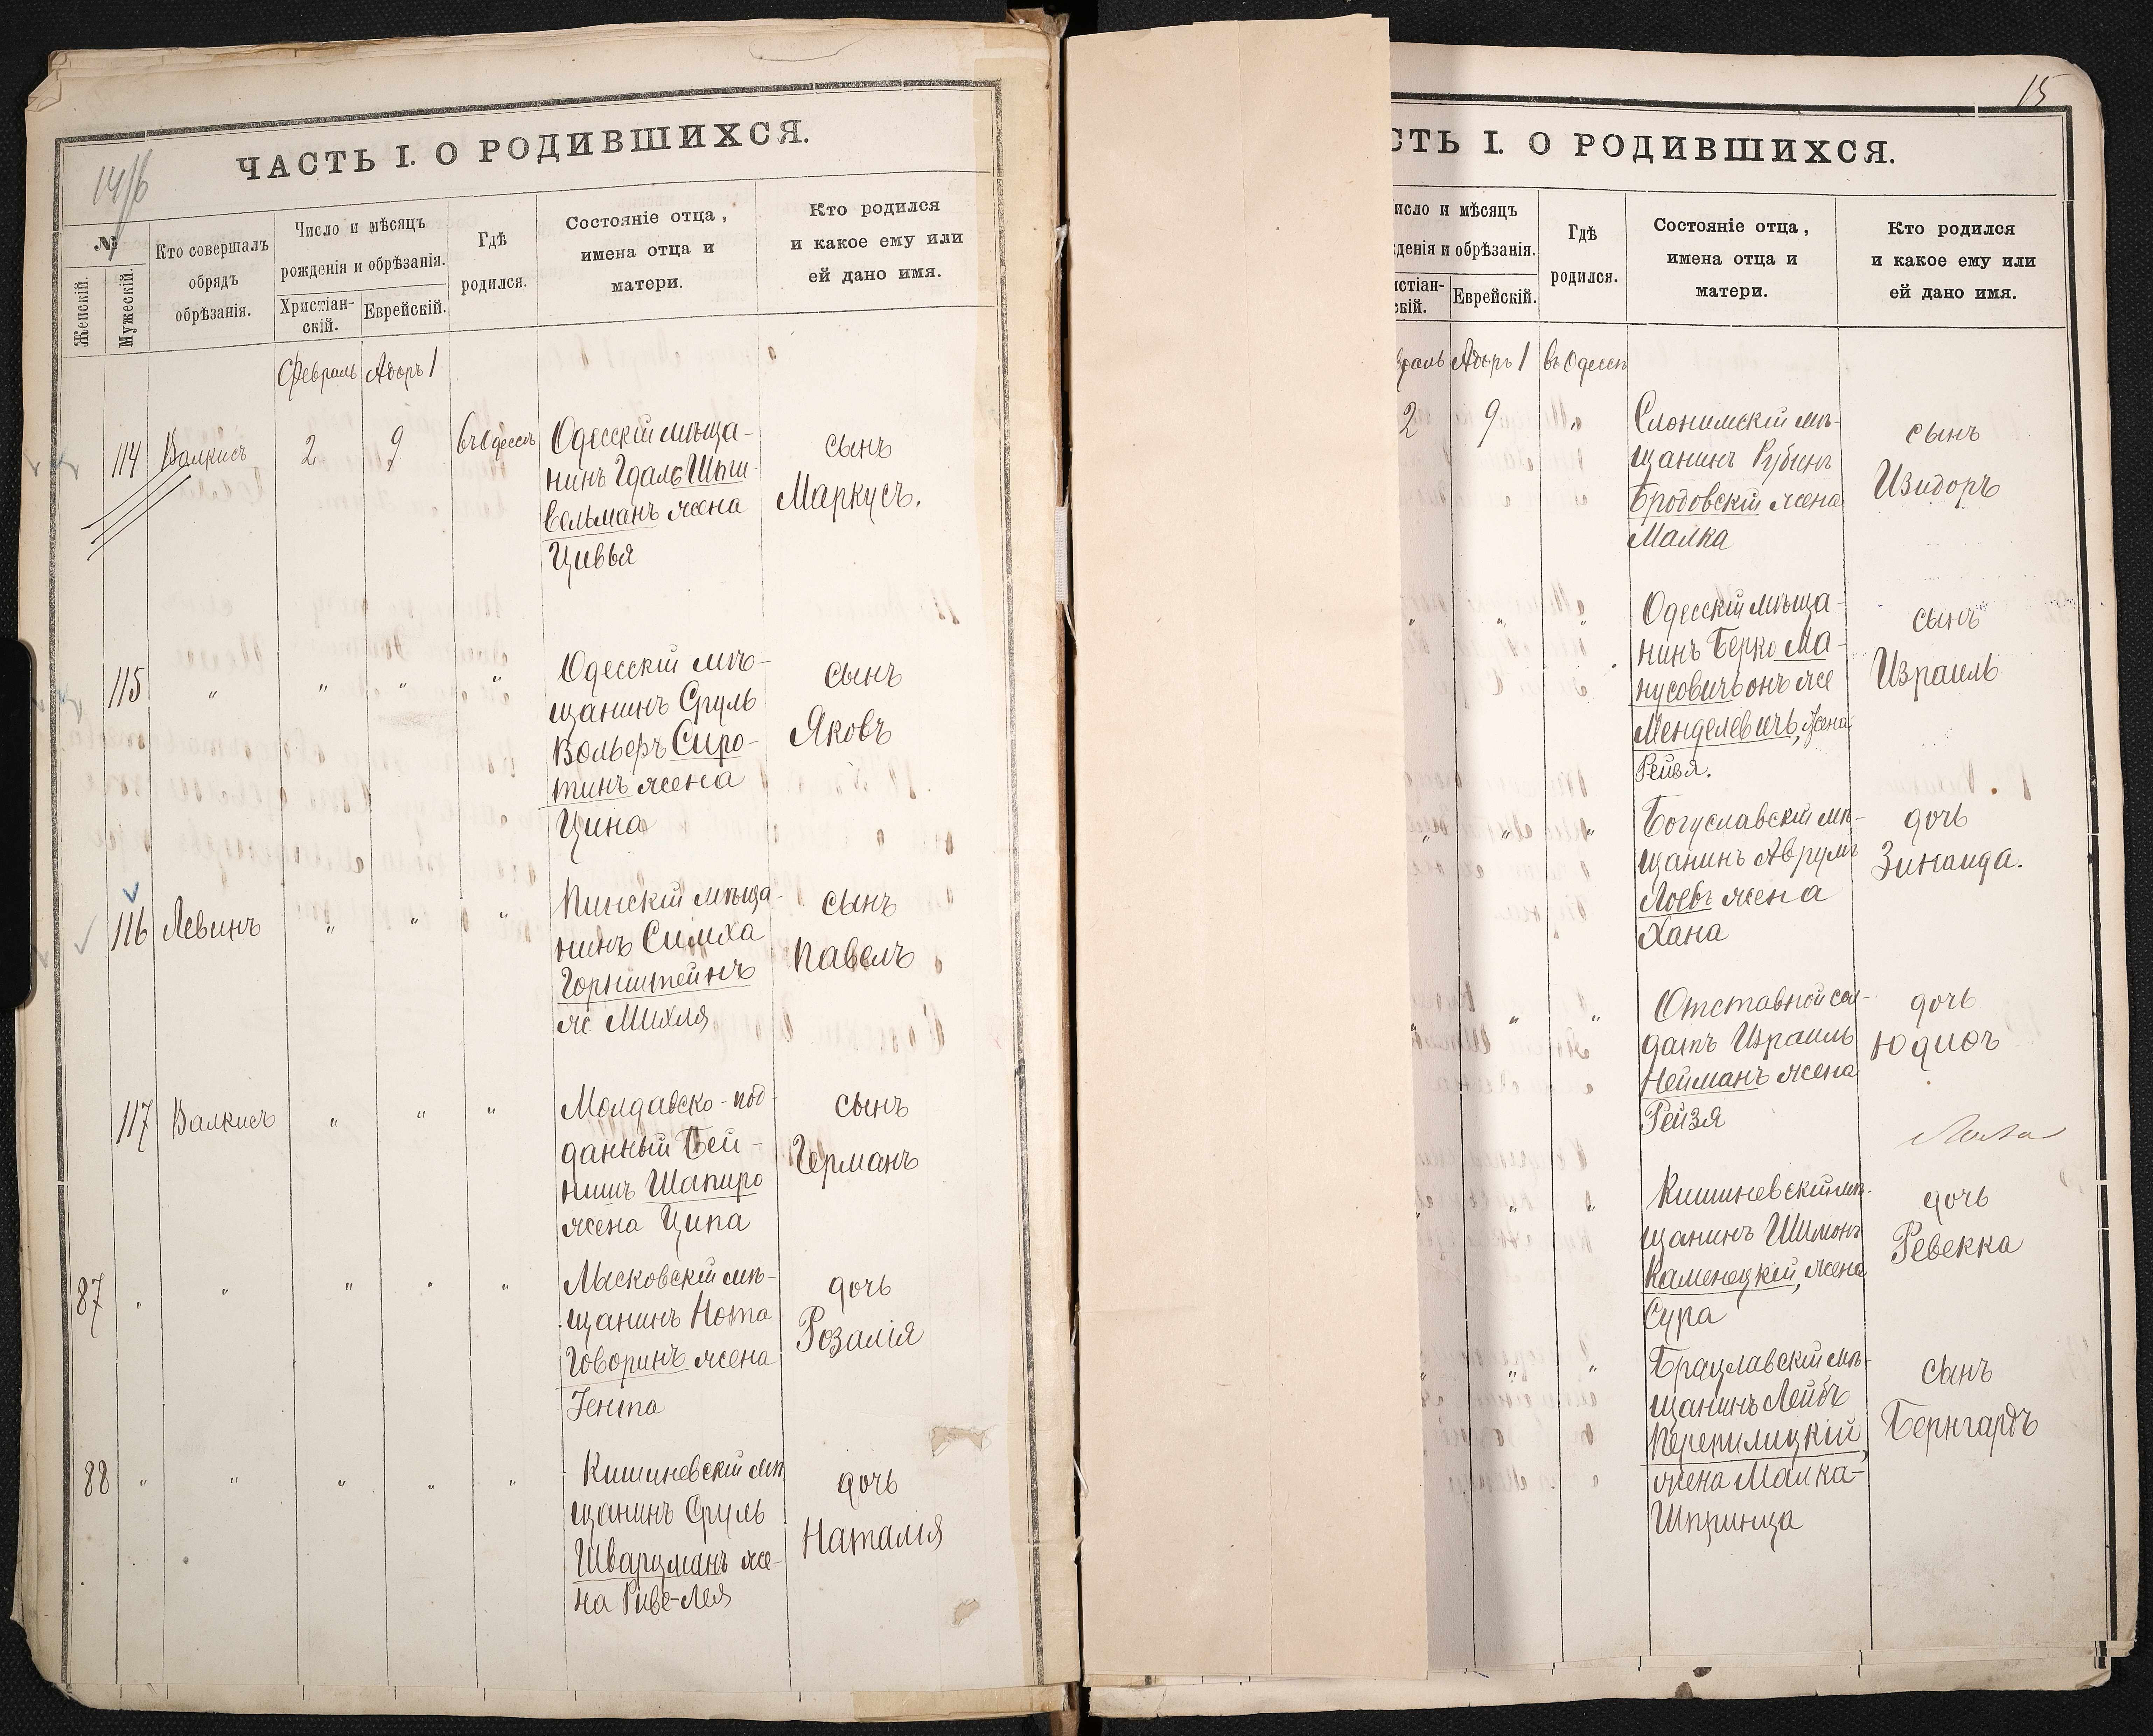 ЧАСТЬ I. О РОДИВШИХСЯ.
№
Женскій.
Мужескій.
Кто совершалъ
обрядъ
обрѣзанія.
Число и мѣсяцъ
рожденія и обрѣзанія.
Христіан-
скій.
Еврейскій.
Гдѣ
родился.
Состояніе отца,
имена отца и
матери.
Кто родился
и какое ему или
ей дано имя.
Февраль Адоръ 1
114 Валкисъ 2 9 въ Одессѣ
Одесскій мѣща-
нинъ Гдаль
вельманъ жена
Цивья
сынъ
Маркусъ.
115 " " " "
Одесскій мѣ-
щанинъ Сруль
Вольфъ Сиро-
тинъ жена
Цина
сынъ
Яковъ
116 Левинъ " " "
Пинскій мѣща-
нинъ Симха
Горнштейнъ
ж Михля
сынъ
Павелъ
117 Валкисъ " " "
Молдавско-под-
данный Бей-
нишъ Шапиро
жена Ципа
сынъ
Германъ
87 " " " " "
Лысковскій мѣ-
щанинъ Нота
Говоринъ жена
Гента
дочь
Розалія
88 " " " " "
Кишиневскій мѣ
щанинъ Сруль
Шварцманъ же-
на Риве-Лея
дочь
Наталія
15
СТЬ I. О РОДИВШИХСЯ.
исло и мѣсяцъ
денія и обрѣзанія.
истіан-
скій.
Еврейскій.
Гдѣ
родился.
Состояніе отца,
имена отца и
матери.
Кто родился
и какое ему или
ей дано имя.
раль Адоръ 1 въ Одессѣ
2 9 "
Слонимскій мѣ-
щанинъ Рубинъ
Бродовскій жена
Малка
сынъ
Изидоръ
" " "
Одесскій мѣща-
нинъ Берко Ма-
нусовичъ онъ же
Менделевичъ, жена
Рейзя.
сынъ
Израиль
" " "
Богуславскій мѣ-
щанинъ Аврумъ
Лоевъ жена
Хана
дочь
Зинаида.
" " "
Отставной сол-
датъ Израиль
Нейманъ жена
Рейзя
дочь
Юдиѳь
" " "
Кишиневскій мѣ-
щанинъ Шимонъ
Каменецкій, жена
Сура
дочь
Ревекка
" "
Брацлавскій мѣ-
щанинъ Лейбъ
Перепилицкій,
жена Малка-
Шпринца
сынъ
Бернгардъ